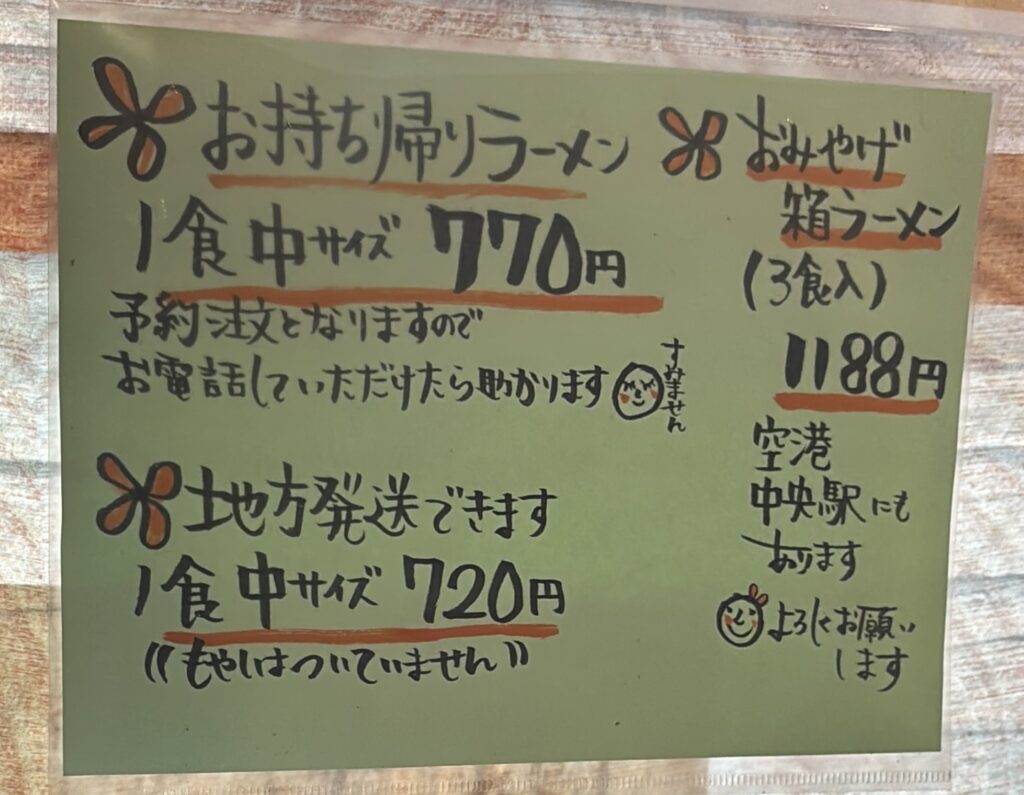 お持ち帰りラーメン
1食 中サイズ 770円
予約注文となりますので
お電話していただけたら助かります
すみません
地方発送できます
1食 中サイズ 720円
((もやしはついていません))
おみやげ
箱ラーメン
(3食入)
1188円
空港
中央駅にも
あります
よろしくお願い
します